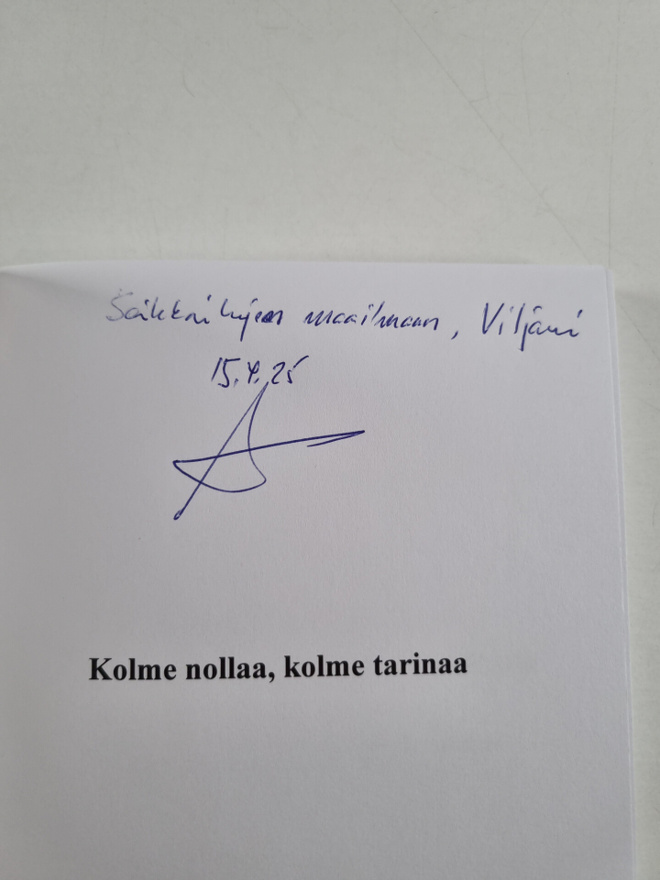 Seikkailujen maailmaan, Viljami
15.4.25
Kolme nollaa, kolme tarinaa